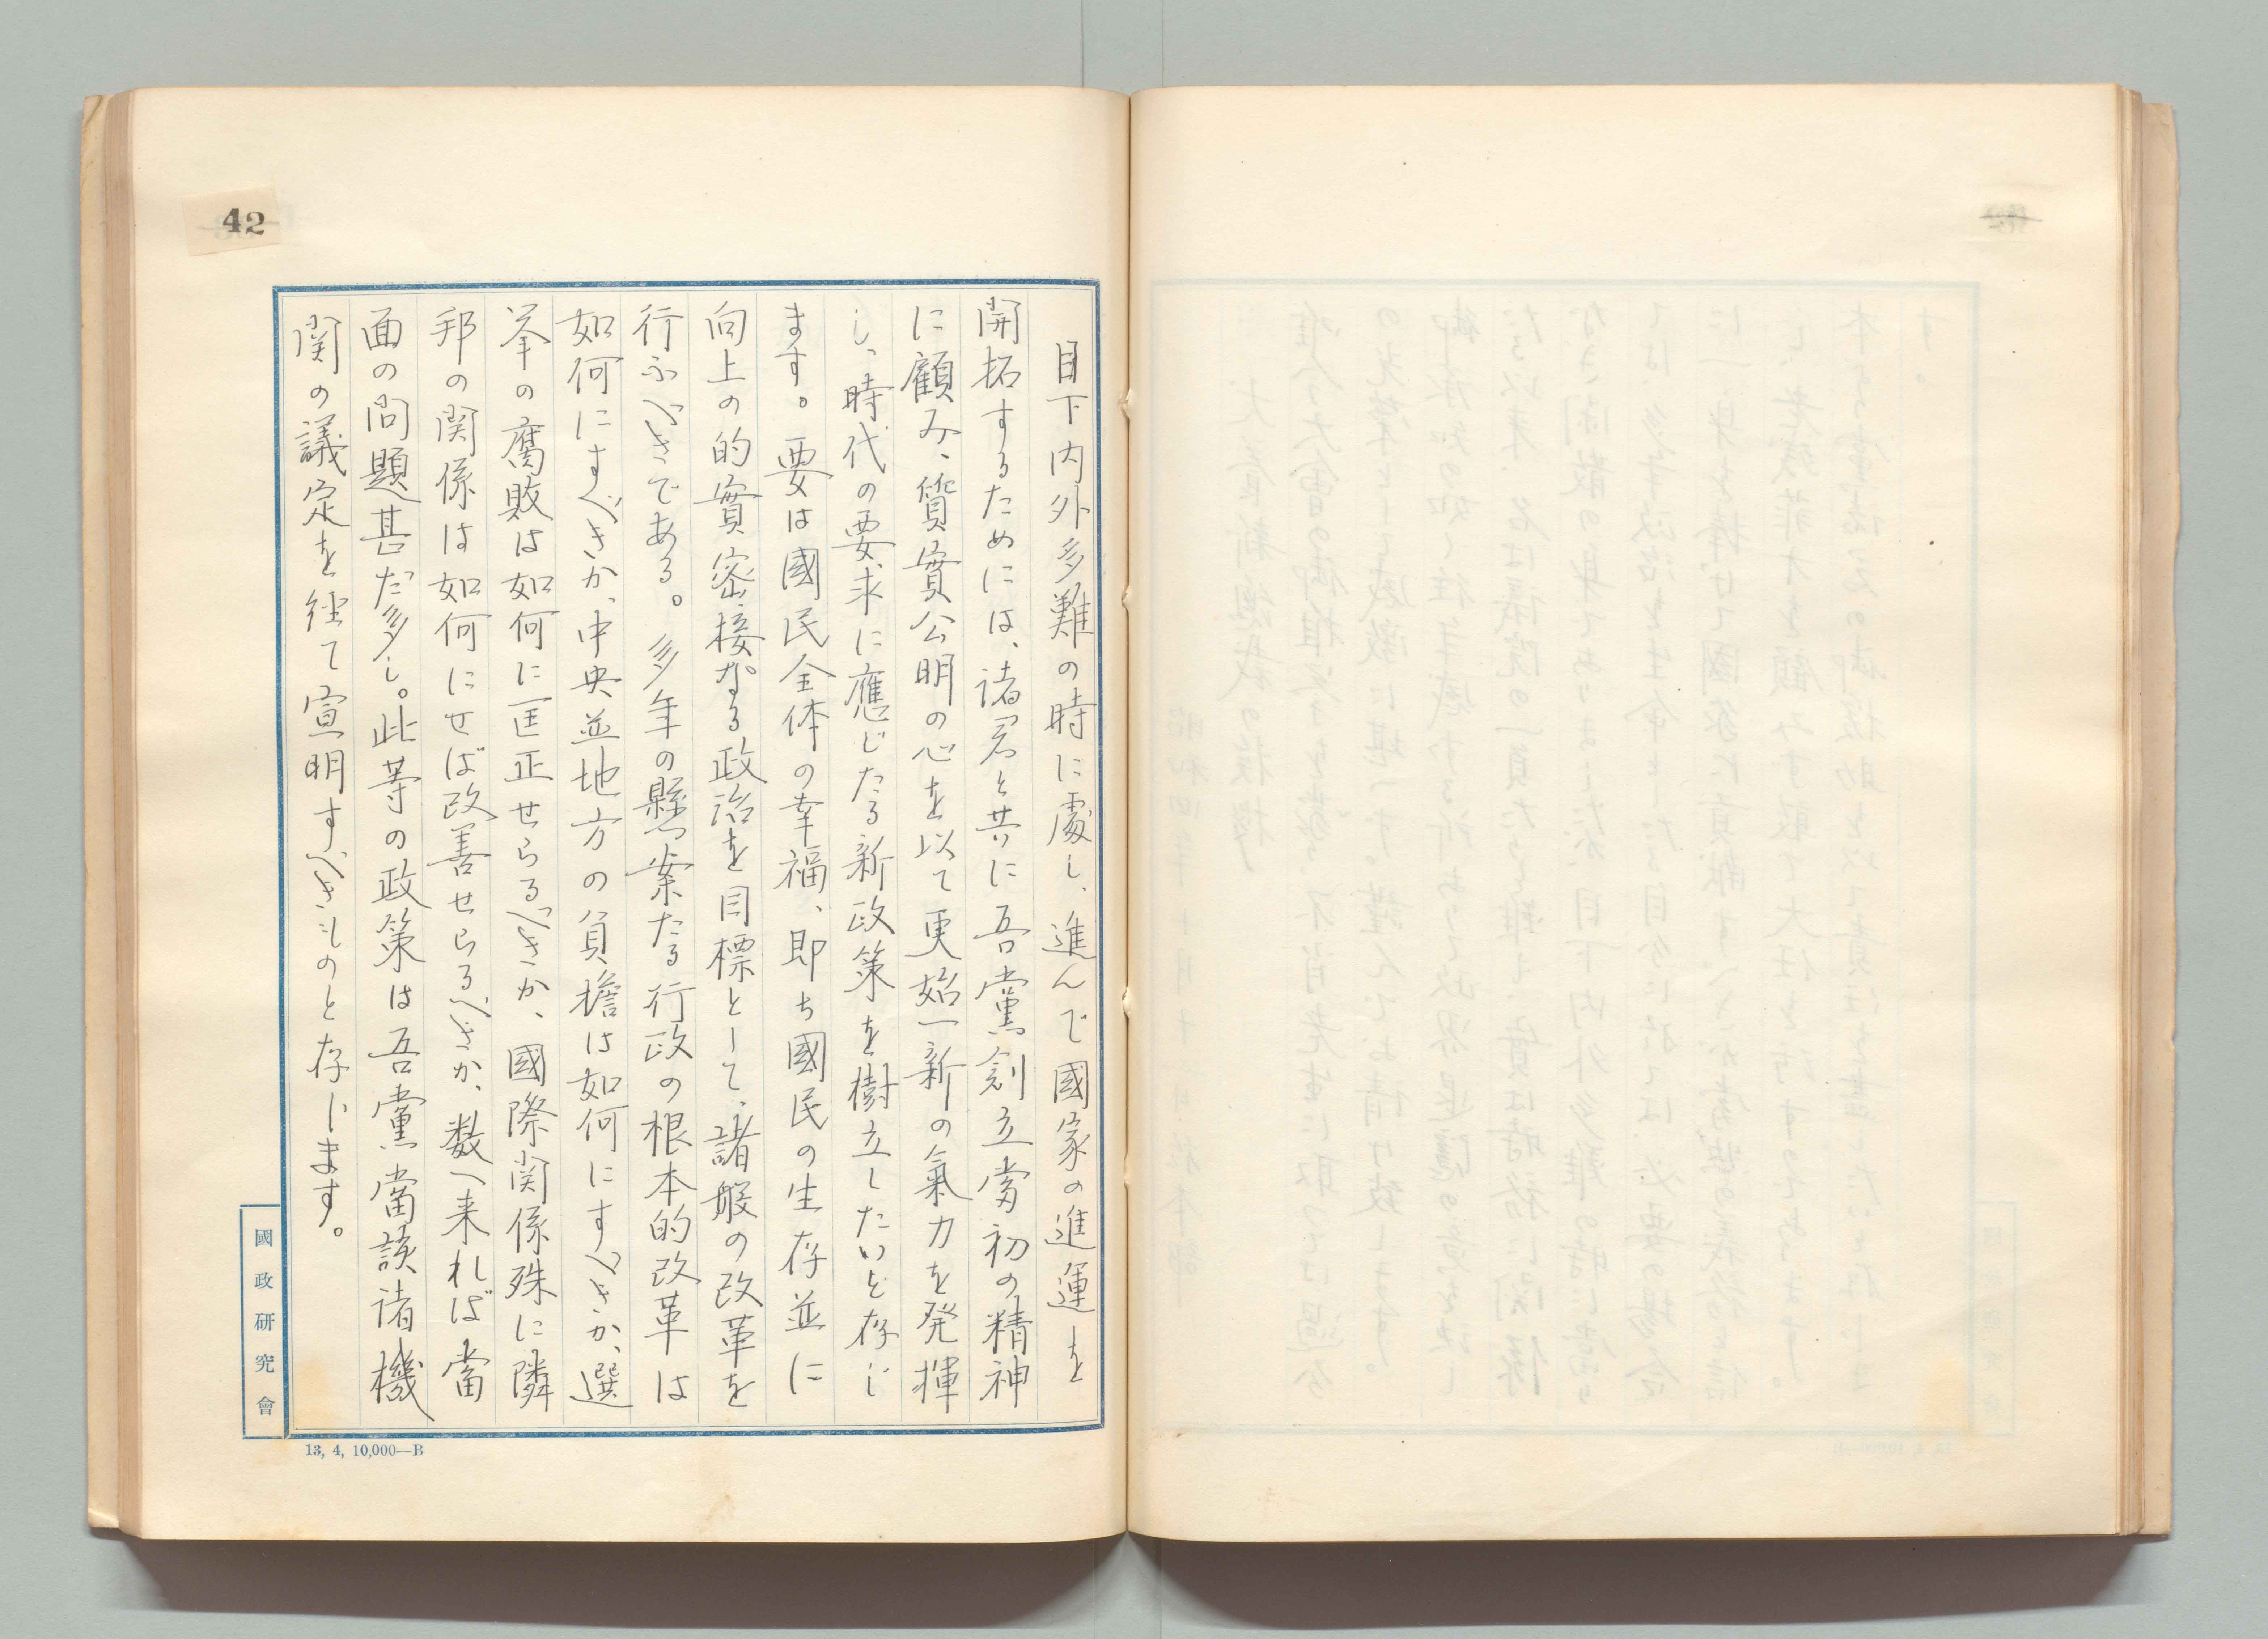 42
目下内外多難の時に處し、進んで國家の進運を
開拓するためには、諸君と共に吾黨創立當初の精神
に顧み、質實公明の心を以て更始一新の氣力を発揮
し、時代の要求に應じたる新政策を樹立したいと存じ
ます。要は國民全体の幸福、即ち國民の生存並に
向上の的實密接なる政治を目標として、諸般の改革を
行ふべきである。多年の懸案たる行政の根本的改革は
如何にすべきか、中央並地方の負擔は如何にすべきか、選
挙の腐敗は如何に匡正せらるべきか、國際関係殊に隣
邦の関係は如何にせば改善せらるべきか、数へ来れば當
面の問題甚だ多し。此等の政策は吾黨當該諸機
関の議定を経て宣明すべきものと存じます。
國政研究會
13, 4, 10,000—B